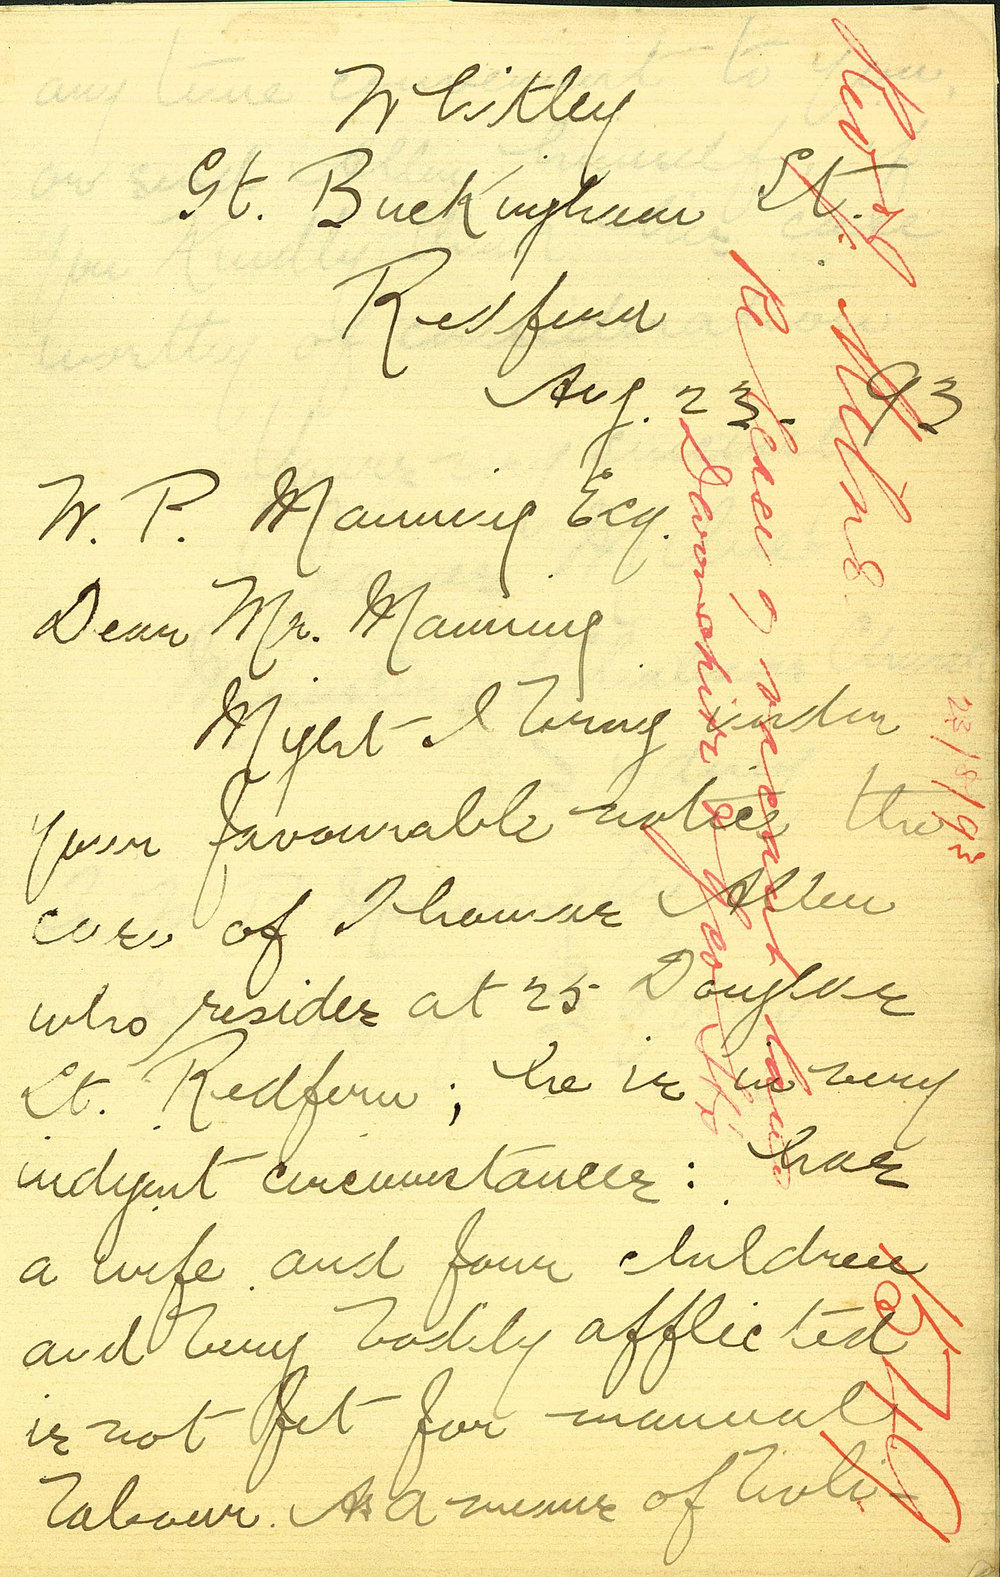 Whitley
Gt. Buckingham St.
Redfern
Aug. 23. 93
W. P. Manning Esq.
Dear Mr. Manning
Might I bring under
your favourable notice the
case of Thomas Allen
who resides at 25 Douglas
St. Redfern; he is in very
indigent circumstances: has
a wife and four children
and being bodily afflicted
is not fit for manual
labour. As a means of liveli-
Rev J. Milne
Re Case of
Davonshire & St
23/8/93